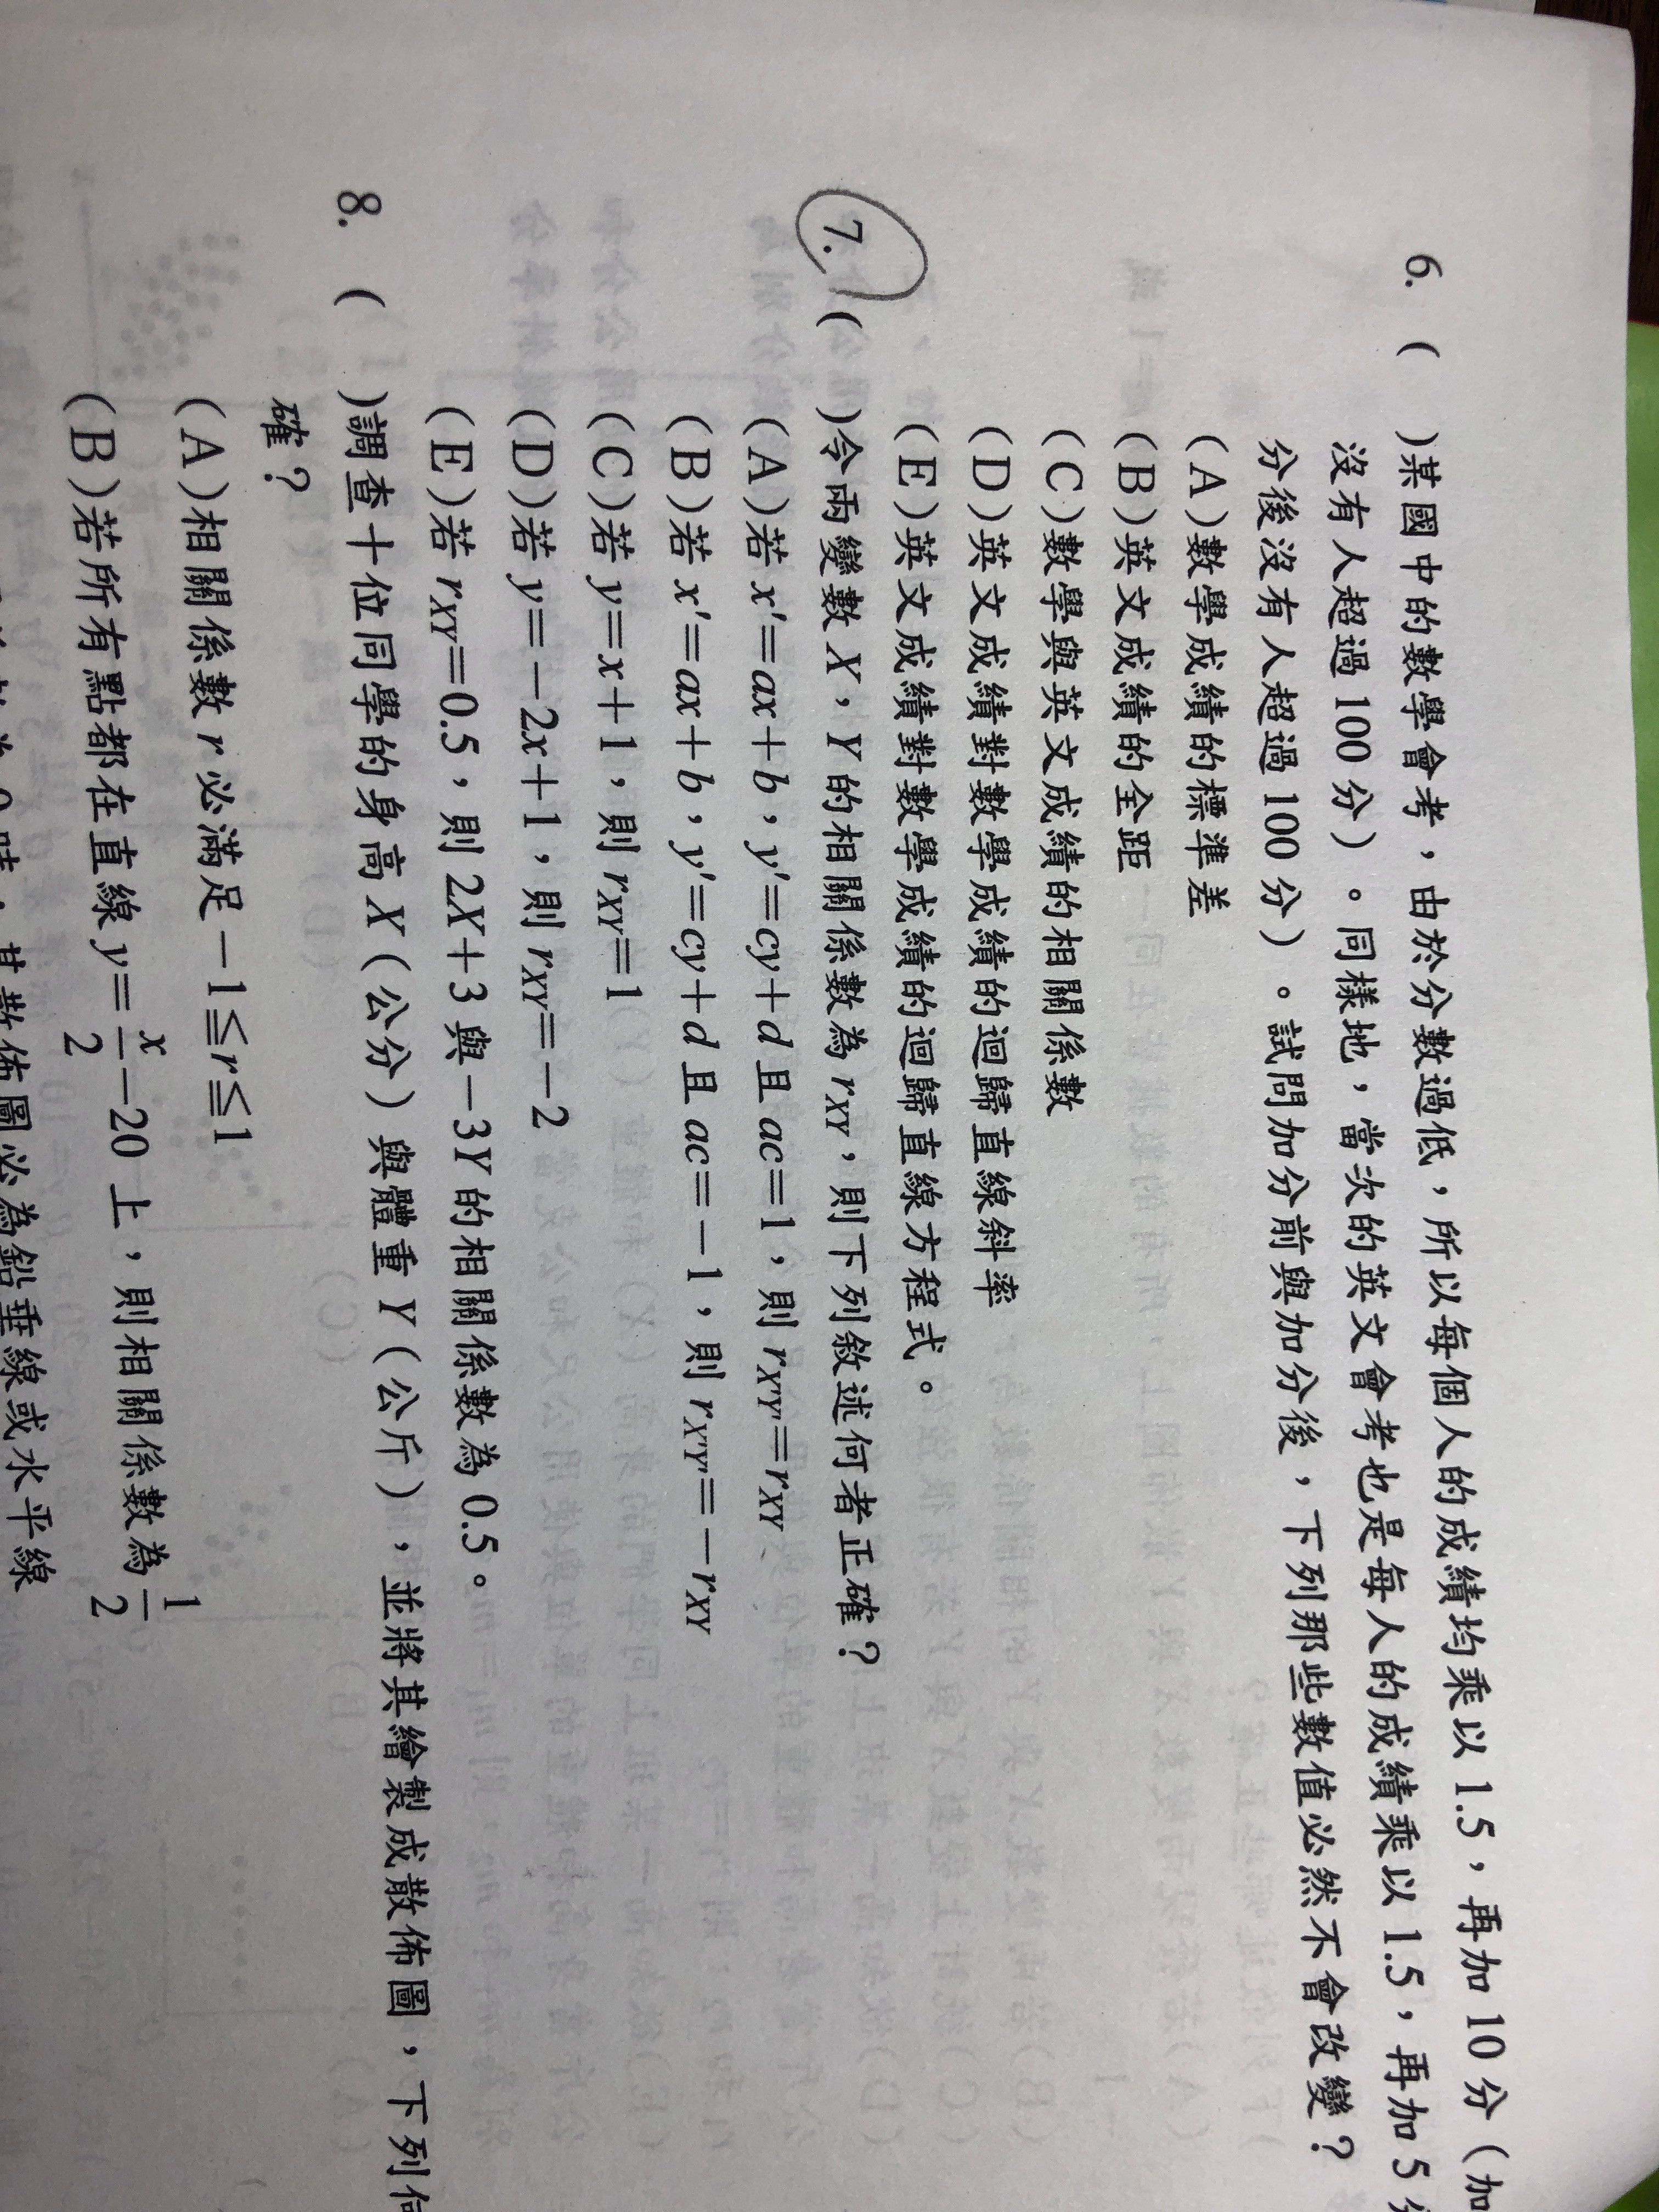 6. (　)某國中的數學會考，由於分數過低，所以每個人的成績均乘以 1.5，再加 10 分（加
沒有人超過 100 分）。同樣地，當次的英文會考也是每人的成績乘以 1.5，再加 5
分後沒有人超過 100 分）。試問加分前與加分後，下列那些數值必然不會改變？
(A)數學成績的標準差
(B)英文成績的全距
(C)數學與英文成績的相關係數
(D)英文成績對數學成績的迴歸直線斜率
(E)英文成績對數學成績的迴歸直線方程式。
7. (　)令兩變數 X，Y 的相關係數為 rXY，則下列敘述何者正確？
(A)若 x′=ax+b，y′=cy+d 且 ac=1，則 rX′Y′=rXY
(B)若 x′=ax+b，y′=cy+d 且 ac=－1，則 rX′Y′=－rXY
(C)若 y=x+1，則 rXY=1
(D)若 y=－2x+1，則 rXY=－2
(E)若 rXY=0.5，則 2X+3 與－3Y 的相關係數為 0.5。
8. (　)調查十位同學的身高 X（公分）與體重 Y（公斤），並將其繪製成散佈圖，下列何
確？
(A)相關係數 r 必滿足－1≦r≦1
(B)若所有點都在直線 y=x/2－20 上，則相關係數為 1/2
時，其散佈圖必為鉛垂線或水平線